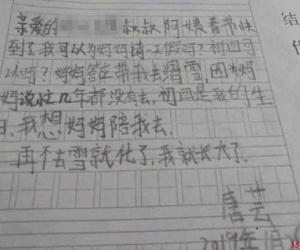 亲爱的 叔叔阿姨春节快
到了我可以为妈妈请一假吗？初四可
以吗？妈妈答应带我去滑雪，因为妈
妈说忙几年都没有去，初四是我的生
日，我想妈妈陪我去，
再不去雪就化了，我就长大了。
唐芸
2019年1月2
结